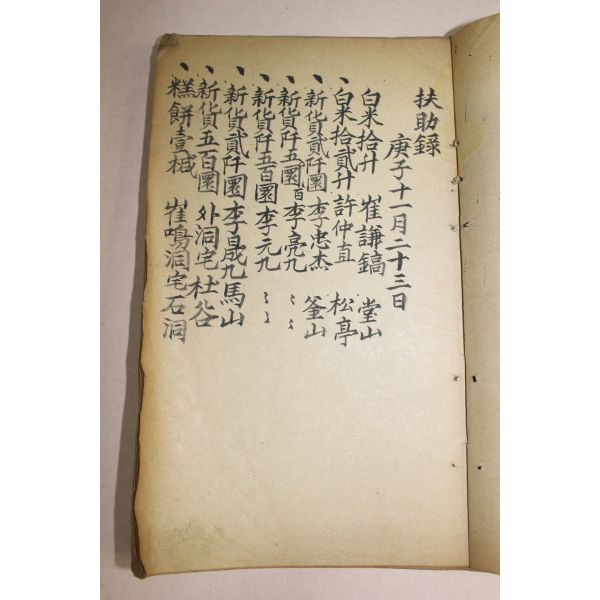 扶助錄
庚子十一月二十三日
白米拾升 崔謙鎬 堂山
白米拾貳升 許仲直 松亭
新貨貳仟圜 李忠杰 釜山
新貨仟五百圜 李亮九 〻
新貨仟五百圜 李元九 〻
新貨貳仟圜 李晟九 馬山
新貨五百圜 外洞宅 杜谷
糕餠壹械 崔鳴洞宅 石洞